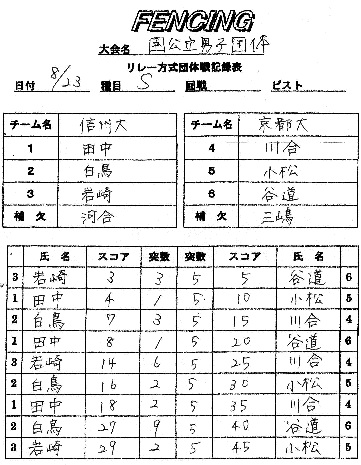 FENCING
大会名 国公立男子団体
リレー方式団体戦記録表
日付 8/23 種目 S 回戦 ピスト
チーム名 信州大 チーム名 京都大
1 田中 4 川合
2 白鳥 5 小松
3 岩崎 6 谷道
補欠 河合 補欠 三嶋
氏名 スコア 突数 突数 スコア 氏名
3 岩崎 3 3 5 5 谷道 6
1 田中 4 1 5 10 小松 5
2 白鳥 7 3 5 15 川合 4
1 田中 8 1 5 20 谷道 6
3 岩崎 14 6 5 25 川合 4
2 白鳥 16 2 5 30 小松 5
1 田中 18 2 5 35 川合 4
2 白鳥 27 9 5 40 谷道 6
3 岩崎 29 2 5 45 小松 5